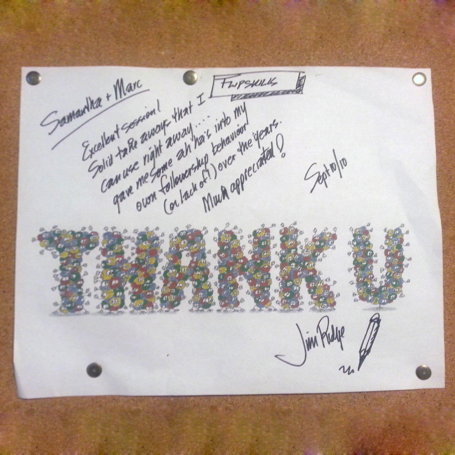 Samantha + Marc
FLIPSKILLS
Excellent session!
Solid take aways that I
can use right away....
gave me some ah ha's into my
own followership behaviour
(or lack of!) over the years.
Much appreciated!
Sept 10/10
THANK U
Jim Ridge